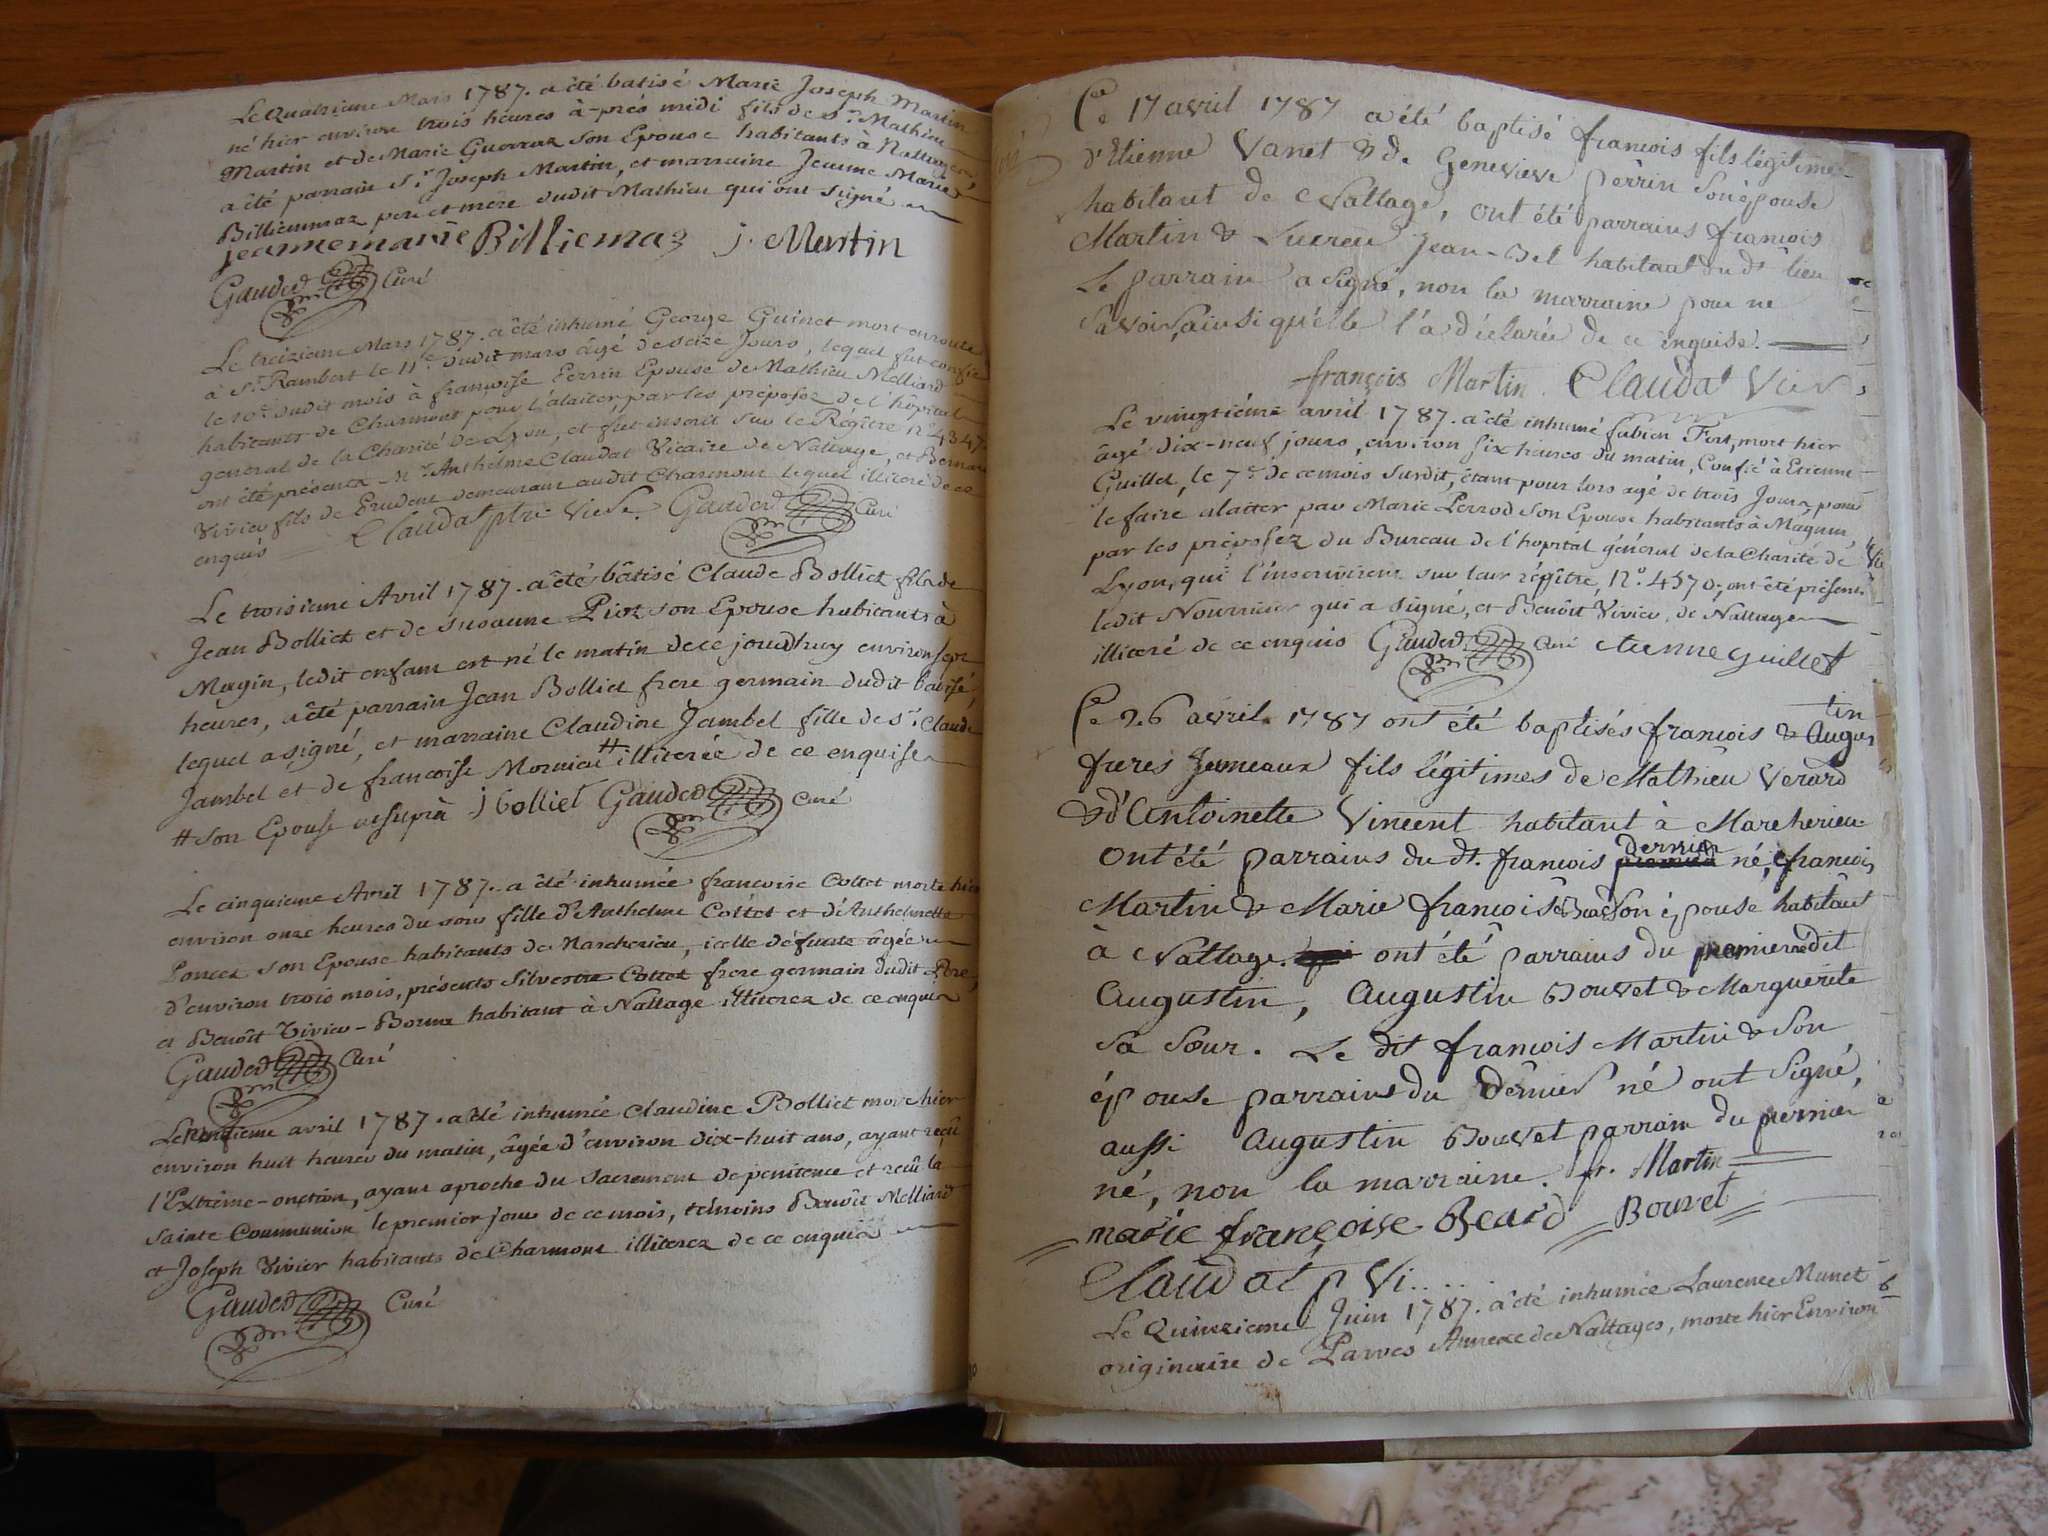 Le Quatrieme Mars 1787. a été batisé Marie Joseph Martin
né hier environ trois heures à-près midi fils de Sr. Mathieu
Martin et de Marie Guerraz son Epouse habitants à Nattages,
a été parrain Sr. Joseph Martin, et marraine Jeanne Marie
Billiemaz pere et mere dudit Mathieu qui ont signé
jeannemarie Billiemaz j. Martin
Gauded Curé
Le treizieme Mars 1787. a été inhumé George Guinet mort en route
à St. Rambert le 11e. dudit mars âgé de seize Jours, lequel fut confié
le 10e. dudit mois à françoise Perrin Epouse de Mathieu Melliard
habitants de Charmont pour l'alaiter, par les préposez de l'hôpital
general de la Charité de Lyon, et fut inscrit sur le Régître No. 4347.
ont été présents Mr. Anthelme Claudat Vicaire de Nattage, et Bernard
Vivier fils de Prudent demeurant audit Charmont lequel illiteré de ce
enquis Claudat ptre Vic. Gauded Curé
Le troisieme Avril 1787. a été bâtisé Claude Bolliet fils de
Jean Bolliet et de Susanne Pioz son Epouse habitants à
Magin, ledit enfant est né le matin de ce jourdhuy environ sept
heures, a été parrain Jean Bolliet frere germain dudit batisé,
lequel a signé, et marraine Claudine Jambel fille de Sr. Claude
Jambel et de françoise Morniaz # illiterée de ce enquise
# son Epouse ut supra j bolliet Gauded Curé
Le cinquieme Avril 1787. a été inhumée françoise Cottet morte hier
environ onze heures du soir fille d'Anthelme Cottet et d'Anthelmette
Poncet son Epouse habitants de Marcherieu, icelle défunte âgée
d'environ trois mois, présents Silvestre Cottet frere germain dudit Pere,
et Benôit Vivier-Borna habitant à Nattage illiterez de ce enquis
Gauded Curé
Le avril 1787. a été inhumée Claudine Bolliet morte hier
environ huit heures du matin, âgée d'environ dix-huit ans, ayant reçu
l'Extrême-onction, ayant aproché du Sacrement de penitence et reçû la
Sainte Communion le premier jour de ce mois, témoins Benôit Melliard
et Joseph Vivier habitants de Charmont illiterez de ce enquis
Gauded Curé
Ce 17 avril 1787 a été baptisé francois fils légitime
d'Etienne Vanet & de Genevieve perrin son épouse
habitant de Nattage, ont été parrains francois
Martin & Lucrece Jean-Del habitant du dt lieu
Le parrain a signé, non la marraine pour ne
savoir, ainsi qu'elle l'a déclarée de ce inquise.
françois Martin. Claudat Vic
Le vingtiéme avril 1787. a été inhumé fabien Fort, mort hier
âgé dix-neuf jours, environ six heures du matin, Confié à Etienne
Guillet, le 7e. de ce mois susdit, étant pour lors agé de trois Jours pour
le faire alaiter par Marie Perrod son Epouse habitants à Magnin,
par les préposez du Bureau de l'hopital général de la Charité de
Lyon, qui l'inscrivirent sur leur régître, No. 4570; ont été présents
ledit Nourricier qui a signé, et Benôit Vivier, de Nattage
illiteré de ce enquis Gauded Curé etienne guillet
Ce 26 avril 1787 ont été baptisés francois & Augustin
freres Jumeaux fils légitimes de Mathieu Verard
& d'Antoinette Vincent habitant à Marcherieu.
Ont été parrains du dt. francois dernier né, francois
Martin & Marie francoise Beard son épouse habitant
à Nattage. ont été parrains du premier né dit
Augustin, Augustin Bouvet & Marguerite
sa sœur. Le dit francois Martin & son
épouse parrains du dernier né ont signé,
aussi Augustin Bouvet parrain du premier
né, non la marraine. fr. Martin
marie françoise Beard Bouvet
Claudat p Vi....
Le Quinzieme Juin 1787. a été inhumée Laurence Munet
originaire de Parves Annexe de Nattages, morte hier Environ